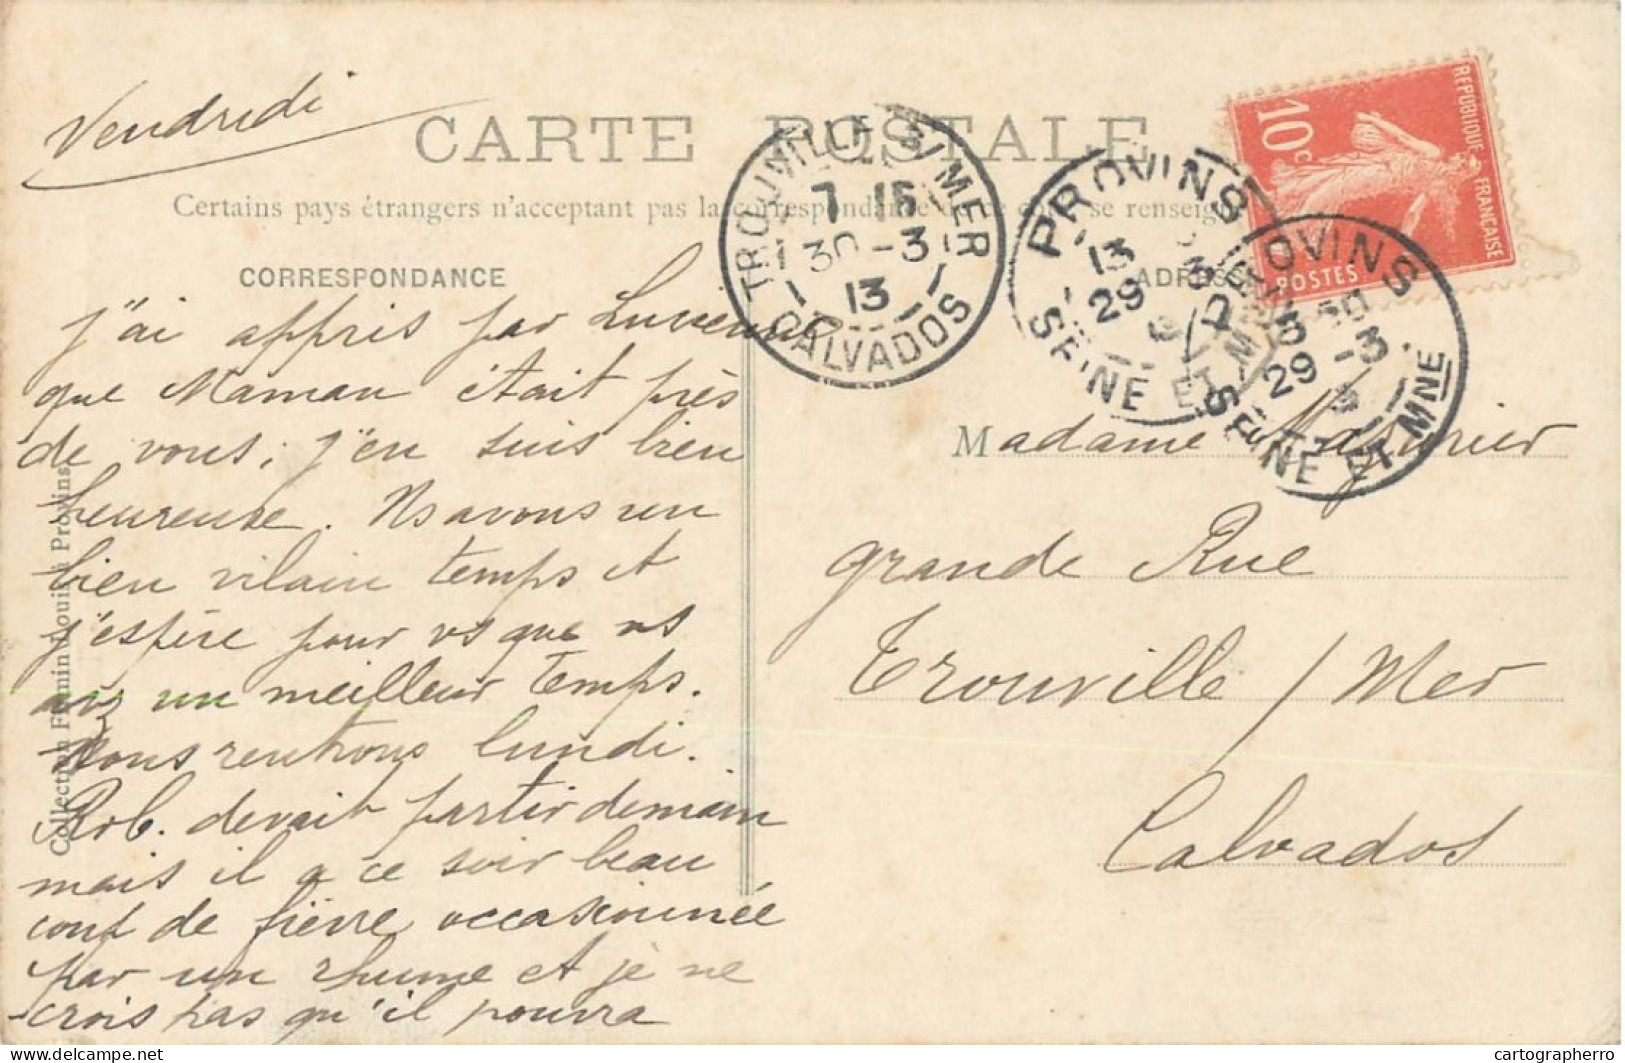 Vendredi
CARTE POSTALE
Certains pays étrangers n'acceptent pas la correspondance se renseig
CORRESPONDANCE
ADRESSE
j'ai appris par
que Maman était près
de vous ; j'en suis bien
heureuse. Ns avons un
bien vilain temps et
j'espère pour vs que vs
avz un meilleur temps.
Nous rentrons lundi.
Rob. devait partir demain
mais il a ce soir beau
coup de fièvre occasionnée
par un rhume et je ne
crois pas qu'il pourra
Collection Fémin Louis, à Provins
TROUVILLE S/MER
7 15
30 - 3
13
CALVADOS
PROVINS
13
29
SEINE ET MNE
PROVINS
29 - 3
SEINE ET MNE
10 c
REPUBLIQUE FRANÇAISE
POSTES
Madame
grande Rue
Trouville / Mer
Calvados
delcampe.net
cartographerro